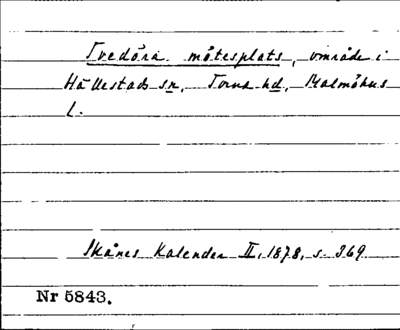 Tvedöra mötesplats, område i
Hällestads sn, Torna hd, Malmöhus
l.
Skånes Kalender II, 1878, s. 369.
Nr 5843.